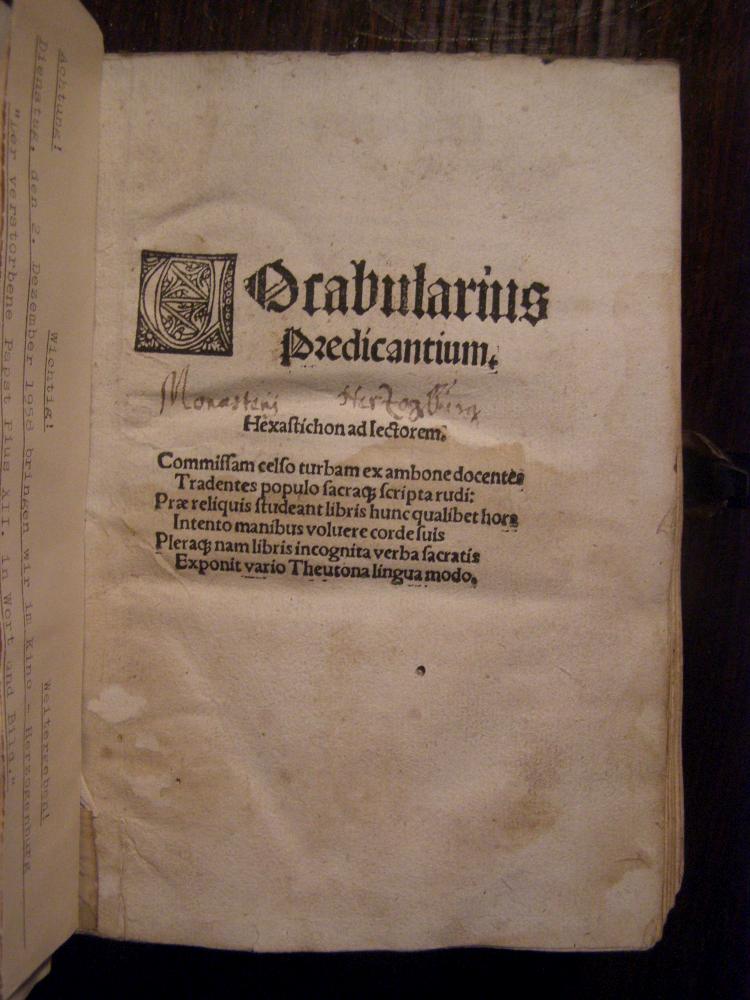 VOcabularius
Predicantium.
Monasterij Herzogburg
Hexastichon ad lectorem.
Commissam celso turbam ex ambone docentes
Tradentes populo sacraqꝫ scripta rudi:
Præ reliquis studeant libris hunc qualibet hora
Intento manibus voluere corde suis
Pleraqꝫ nam libris incognita verba sacratis
Exponit vario Theutona lingua modo.
Achtung! Wichtig! Weitergeben!
Dienstag, den 2. Dezember 1958 bringen wir im Kino - Herzogenburg
"Der verstorbene Papst Pius XII. in Wort und Bild."